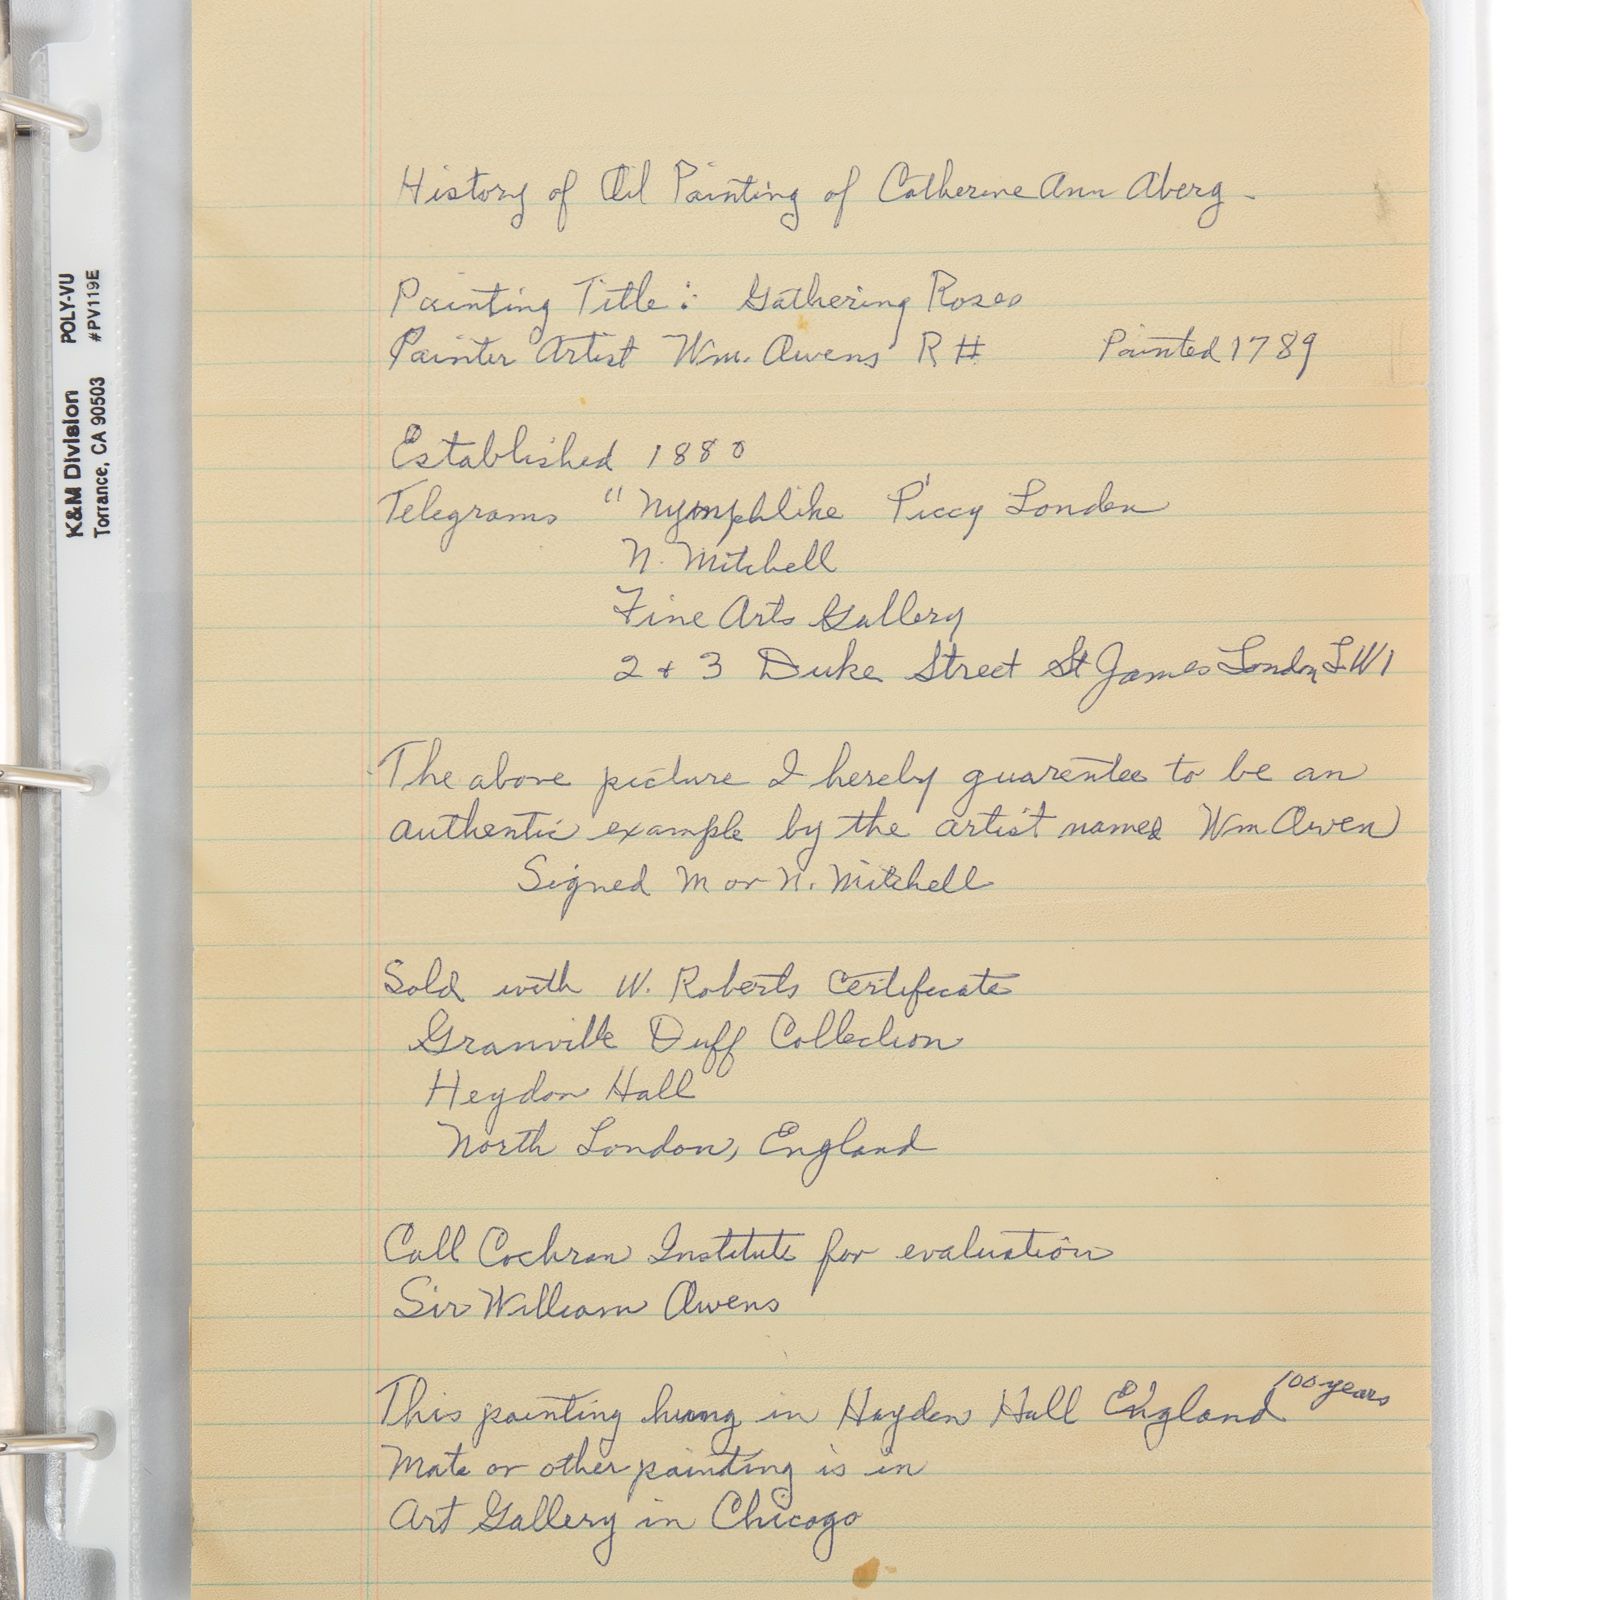 K&M Division POLY-VU
Torrance, CA 90503 #PV119E
History of Oil Painting of Catherine Ann Aberg -
Painting Title: Gathering Roses
Painter Artist Wm. Owens R # Painted 1789
Established 1880
Telegrams "Nymphlike Piccy London
N. Mitchell
Fine Arts Gallery
2 + 3 Duke Street St James London S.W1
The above picture I hereby guarentee to be an
authentic example by the artist named Wm Owen
Signed M or N. Mitchell
Sold with W. Roberts Certificate
Granville Duff Collection
Heydon Hall
North London, England
Call Cochran Institute for evaluation
Sir William Owens
This painting hung in Hayden Hall England 100 years
Mate or other painting is in
Art Gallery in Chicago